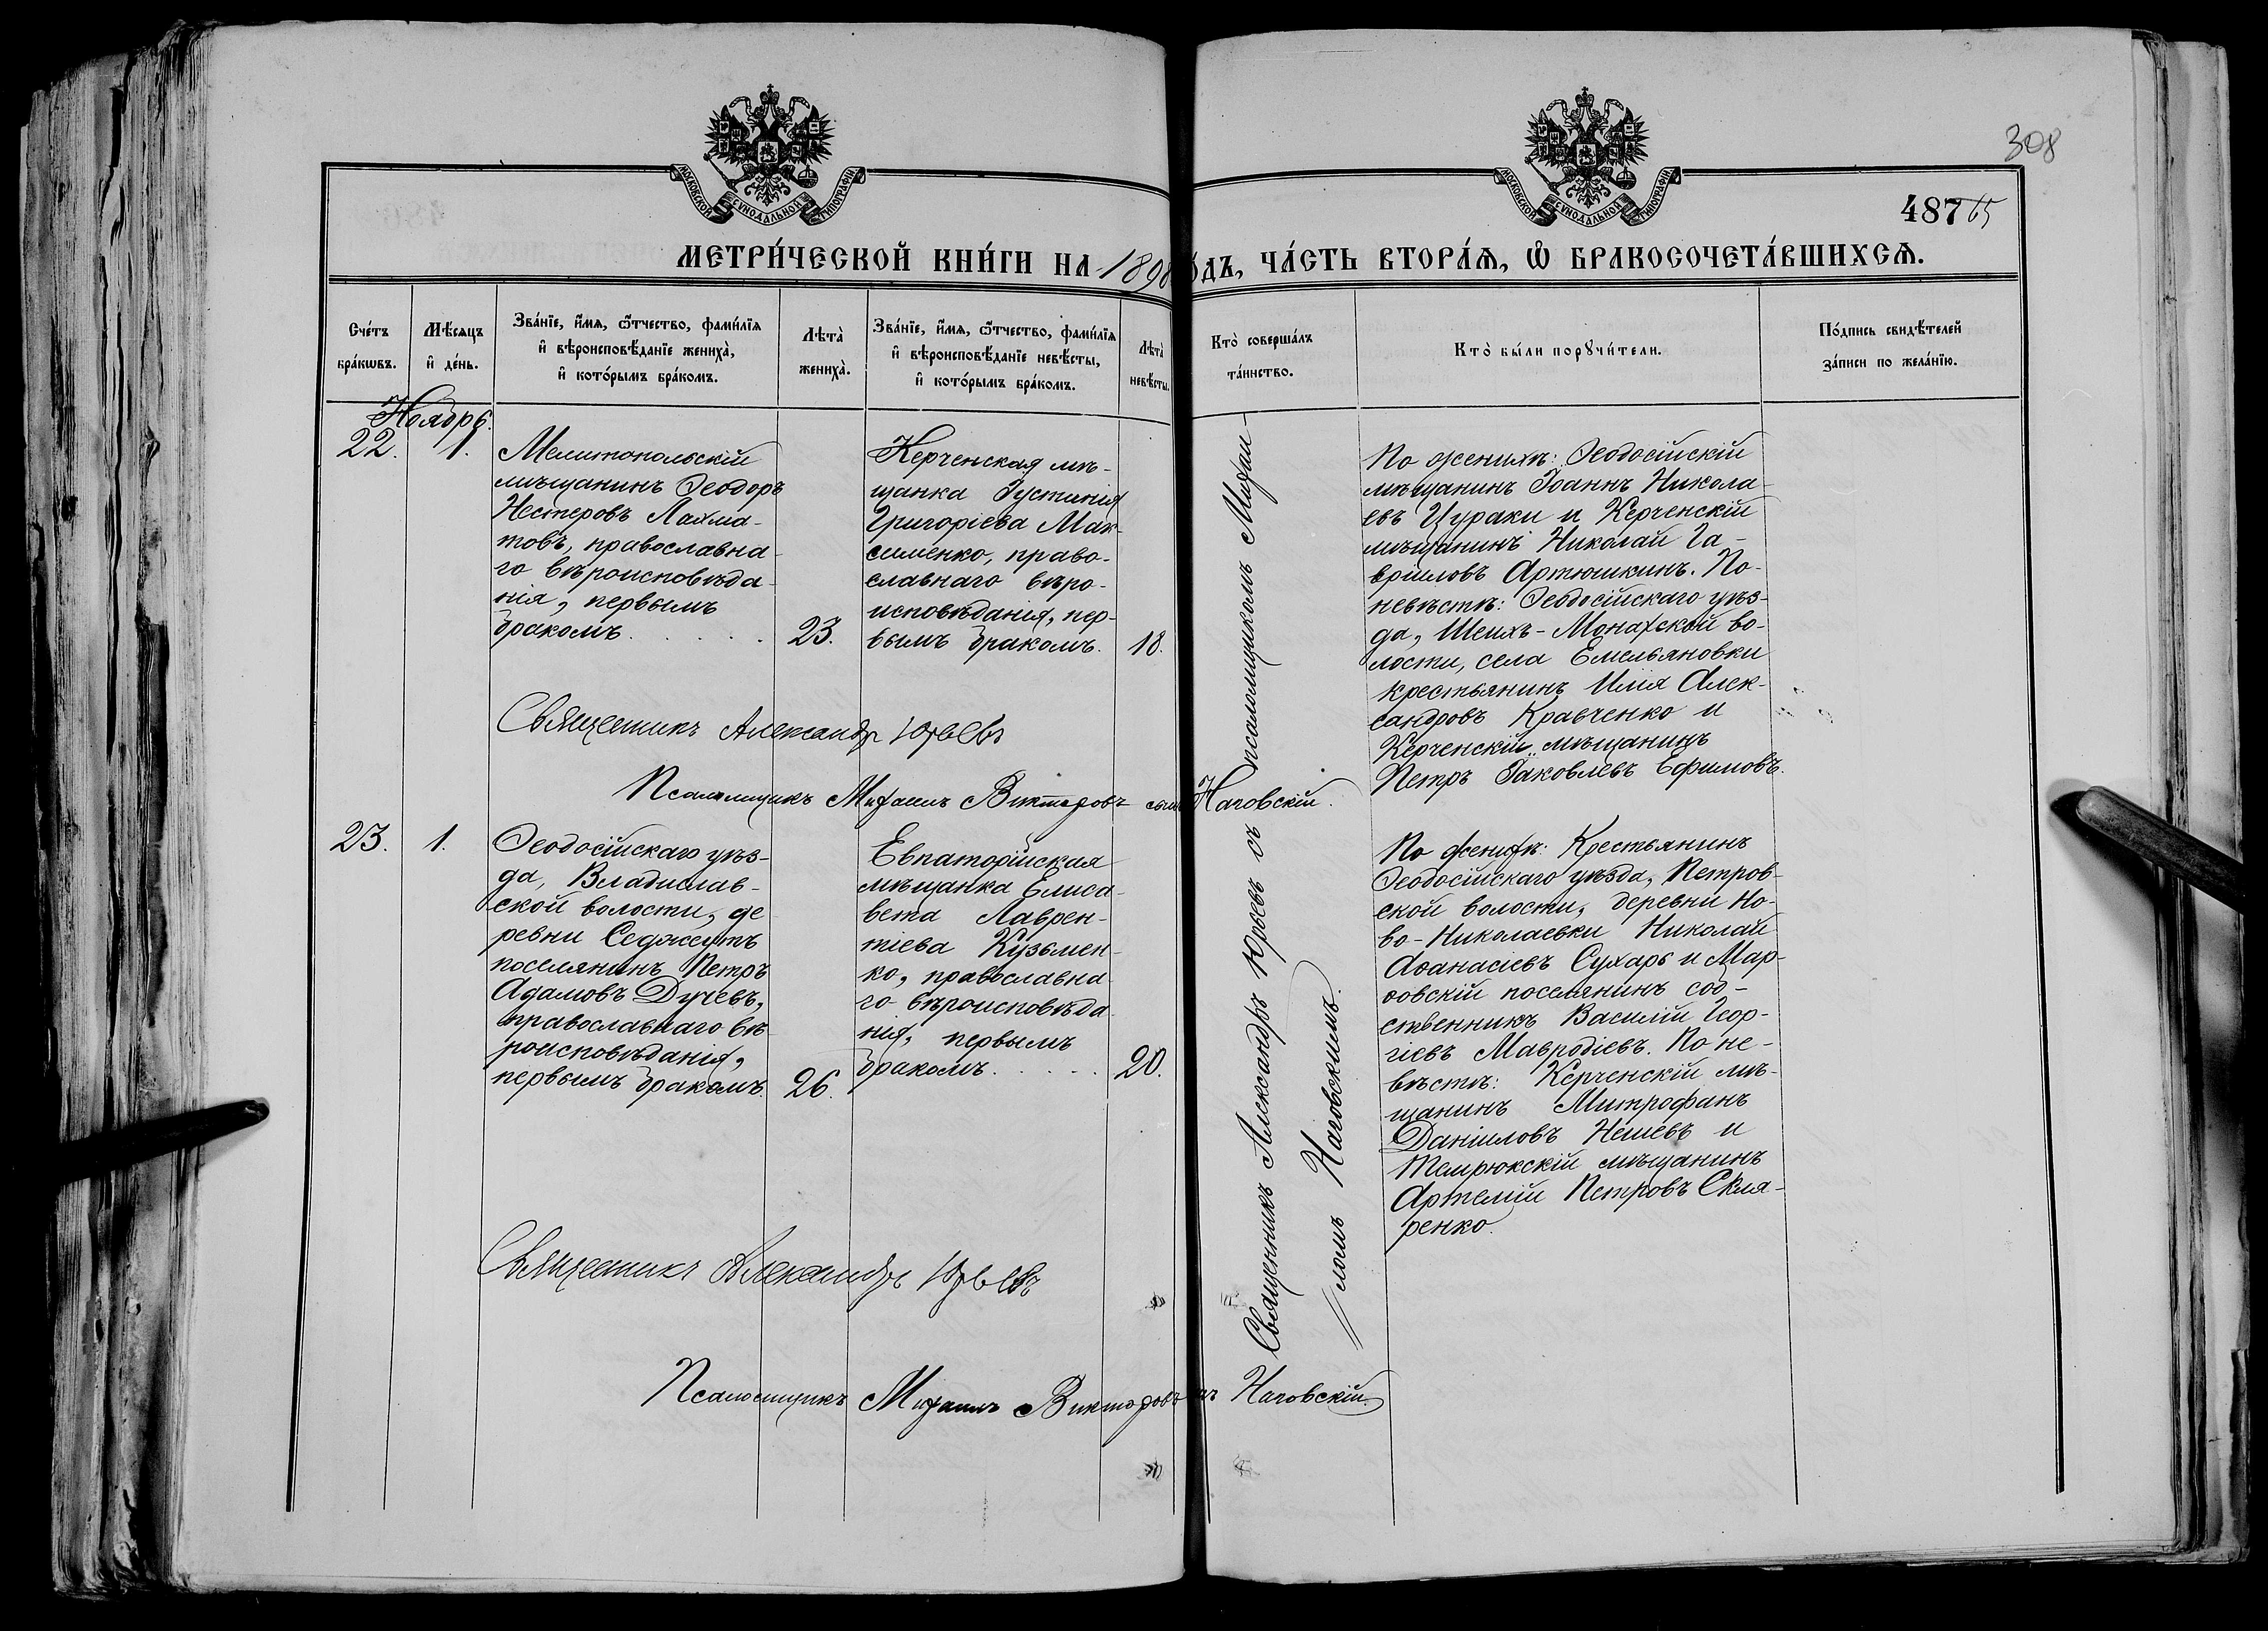 308
487 65
МОСКОВСКОЙ СѴНОДАЛЬНОЙ ТИПОГРАФІИ
МОСКОВСКОЙ СѴНОДАЛЬНОЙ ТИПОГРАФІИ
МЕТРИ́ЧЕСКОЙ КНИ́ГИ НА 1898 ГО́ДЪ, ЧА́СТЬ ВТОРА́Ѧ, Ѡ҆ БРАКОСОЧЕТА́ВШИХСѦ.
Сче́тъ
бра́кѡвъ.
Мѣ́сѧцъ
и҆ де́нь.
Зва́нїе, и҆́мѧ, ѻ҆́тчество, фамѝлїѧ
и҆ вѣроисповѣ́данїе жениха̀,
и҆ кото́рымъ бра́комъ.
Лѣта̀
жениха̀.
Зва́нїе, и҆́мѧ, ѻ҆́тчество, фамѝлїѧ
и҆ вѣроисповѣ́данїе невѣ́сты,
и҆ кото́рымъ бра́комъ.
Лѣта̀
невѣ́сты.
Кто̀ соверша́лъ
та́инство.
Кто̀ бы́ли порꙋчи́тели.
По́дпись свидѣ́телей
за́писи по жела́нїю.
Ноябрь.
22.
1.
Мелитопольскій
мѣщанинъ Ѳеодоръ
Нестеровъ Лахма-
товъ, православна-
го вѣроисповѣда-
нія, первымъ
бракомъ.
23.
Керченская мѣ-
щанка Іустинія
Григоріева Мак-
сименко, право-
славнаго вѣро-
исповѣданія, пер-
вымъ бракомъ.
18.
Священникъ Александръ Юрьевъ съ псаломщикомъ Михаи-
ломъ Наговскимъ.
По женихѣ: Ѳеодосійскій
мѣщанинъ Іоаннъ Никола-
евъ Цураки и Керченскій
мѣщанинъ Николай Га-
вріиловъ Артюшкинъ. По-
невѣстѣ: Ѳеодосійскаго уѣз-
да, Шейхъ-Монахской во-
лости, села Емельяновки
крестьянинъ Илія Алек-
сандровъ Кравченко и
Керченскій мѣщанинъ
Петръ Іаковлевъ Ефимовъ.
Священникъ Александръ Юрьевъ
Псаломщикъ Михаилъ Викторовъ сынъ Наговскій.
23.
1.
Ѳеодосійскаго уѣз-
да, Владислав-
ской волости, де
ревни Седжеутъ
поселянинъ Петръ
Адамовъ Дучевъ,
православнаго вѣ-
роисповѣданія,
первымъ бракомъ.
26.
Евпаторійская
мѣщанка Елиса-
вета Лаврен-
тіева Кузьмен-
ко, православна
го вѣроисповѣда
нія, первымъ
бракомъ.
20.
По женихѣ: Крестьянинъ
Ѳеодосійскаго уѣзда, Петров-
ской волости, деревни Но-
во-Николаевки Николай
Аѳанасіевъ Сухарь и Мар-
ѳовскій поселянинъ соб-
ственникъ Василій Геор-
гіевъ Мавродіевъ. По не-
вѣстѣ: Керченскій мѣ-
щанинъ Митрофанъ
Даніиловъ Нешевъ и
Темрюкскій мѣщанинъ
Артемій Петровъ Скля-
ренко.
Священникъ Александръ Юрьевъ
Псаломщикъ Михаилъ Викторовъ Наговскій